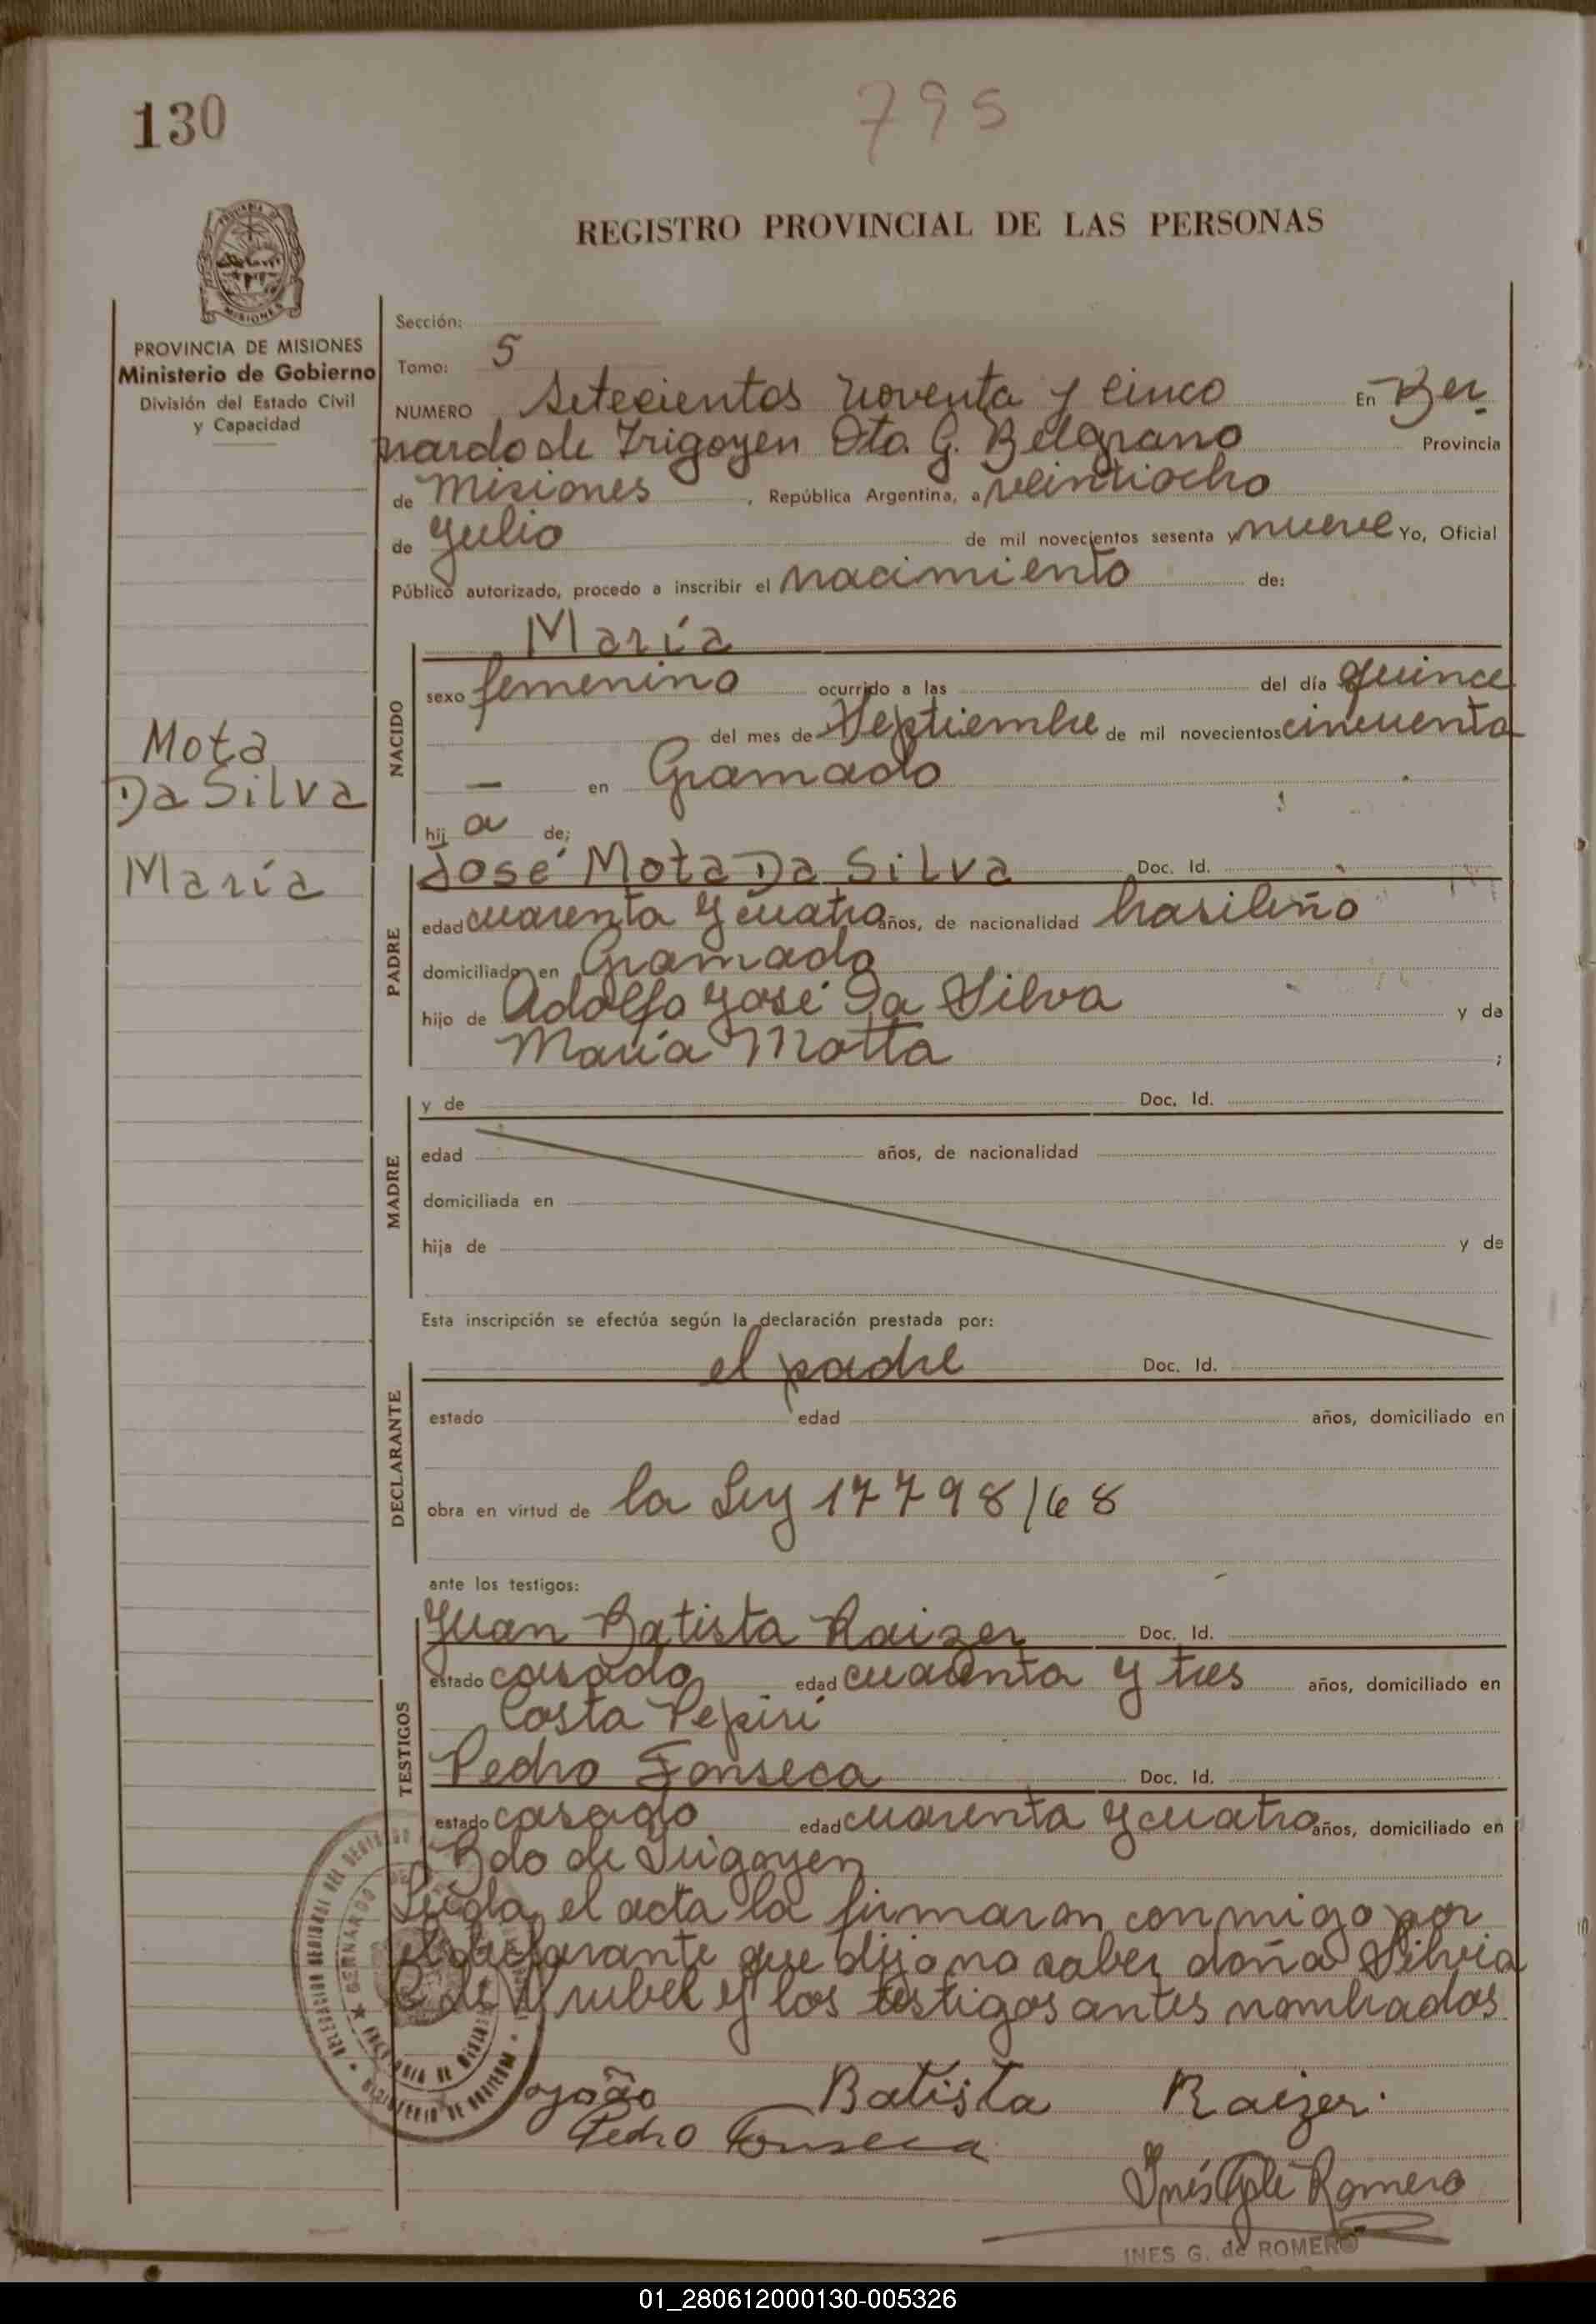 130
795
REGISTRO PROVINCIAL DE LAS PERSONAS
MISIONES
PROVINCIA DE MISIONES
Ministerio de Gobierno
División del Estado Civil
y Capacidad
Sección:
Tomo: 5
NUMERO Setecientos noventa y cinco En Ber
nardo de Irigoyen Dto. G. Belgrano Provincia
de Misiones, República Argentina, a veintiocho
de Julio de mil novecientos sesenta y nueve Yo, Oficial
Público autorizado, procedo a inscribir el nacimiento de:
NACIDO
María
sexo femenino ocurrido a las del día quince
del mes de Septiembre de mil novecientos cincuenta
— en Gramado
hij a de:
Mota
Da Silva
María
PADRE
José Mota Da Silva Doc. Id.
edad cuarenta y cuatro años, de nacionalidad brasileño
domiciliado en Gramado
hijo de Adolfo José Da Silva y da
María Motta ;
MADRE
y de Doc. Id.
edad años, de nacionalidad
domiciliada en
hija de y de
Esta inscripción se efectúa según la declaración prestada por:
DECLARANTE
el padre Doc. Id.
estado edad años, domiciliado en
obra en virtud de la Ley 17798/68
ante los testigos:
TESTIGOS
Juan Batista Raizer Doc. Id.
estado casado edad cuarenta y tres años, domiciliado en
Costa Pepiri
Pedro Fonseca Doc. Id.
estado casado edad cuarenta y cuatro años, domiciliado en
Bdo de Irigoyen
Leida el acta la firmaron conmigo por
el declarante que dijo no saber doña Silvia
de y los testigos antes nombrados
João Batista Raizer
Pedro Fonseca
Inés Romero
INES G. de ROMERO
01_280612000130-005326